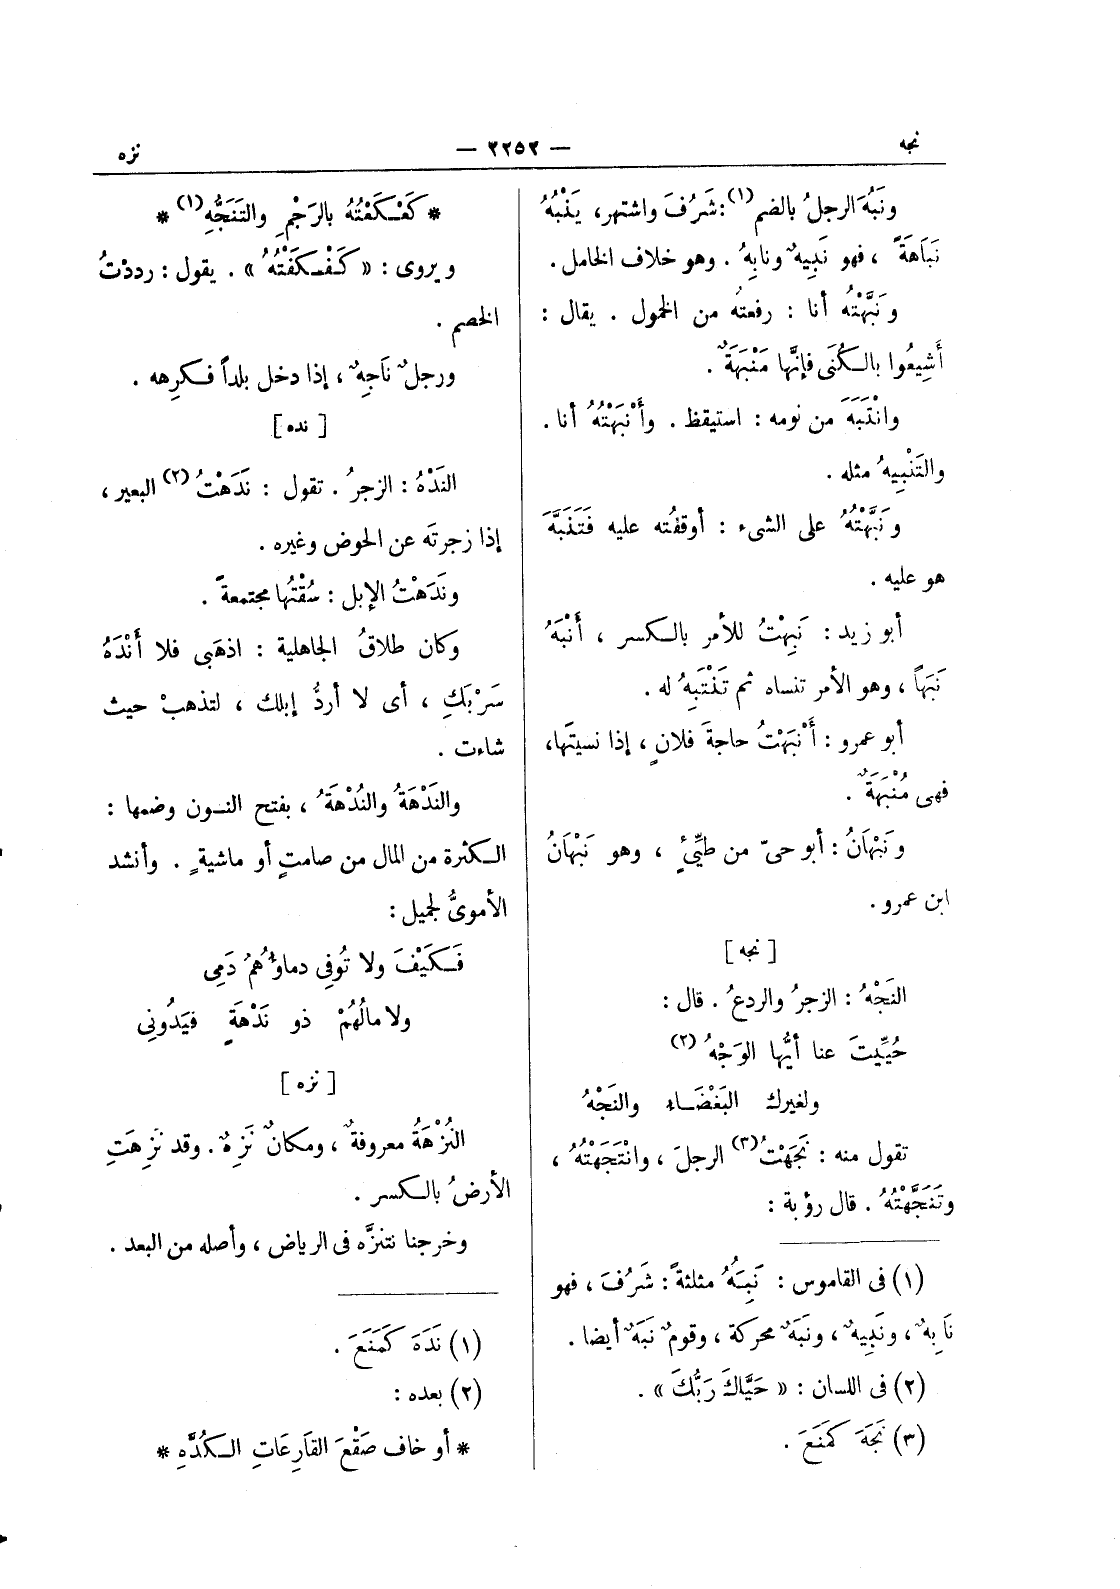 نجه
— ٢٢٥٢ —
نزه
ونَبُهَ الرجلُ بالضم(١): شَرُفَ واشتهر، يَنْبُهُ
نَبَاهَةً ، فهو نَبِيهٌ ونابِهٌ . وهو خلاف الخامل.
ونَبَّهْتُهُ أنا : رفعتهُ من الخمول . يقال :
أَشِيعُوا بالكُنَى فإنَّها مَنْبَهَةٌ .
وانْتَبَهَ من نومه : استيقظ . وأَنْبَهْتُهُ أنا .
والتَنْبِيهُ مثله .
ونَبَّهْتُهُ على الشىء : أوقفْته عليه فَتَنَبَّهَ
هو عليه .
أبو زيد : نَبِهْتُ للأمر بالكسر ، أَنْبَهُ
نَبَهاً ، وهو الأمر تنساه ثم تَنْتَبِهُ له .
أبو عمرو : أَنْبَهْتُ حاجةَ فلانٍ ، إذا نسيتَها،
فهى مُنْبَهَةٌ .
ونَبْهَانُ : أبو حىّ من طَيِّئٍ ، وهو نَبْهَانُ
ابن عمرو .
[ نجه ]
النَجْهُ : الزجرُ والردعُ . قال :
حُيِّيتَ عنا أيُّها الوَجْهُ (٢)
ولغيرك البَغْضَاء والنَجْهُ
تقول منه : نَجَهْتُ(٣) الرجلَ ، وانْتَجَهْتُهُ ،
وتَنَجَّهْتُهُ . قال رؤبة :
(١) فى القاموس : نَبِهُ مثلثةً : شَرُفَ ، فهو
نَابِهٌ ، ونَبِيهٌ ، ونَبَهٌ محركة ، وقوم نَبَهٌ أيضا .
(٢) فى اللسان : « حَيَّاكَ رَبُّكَ » .
(٣) نَجَهَ كَمَنَعَ .
* كَعْكَعْتُهُ بالرَجْمِ والتَنَجُّهِ(١) *
ويروى : « كَفْكَفْتُهُ » . يقول : رددْتُ
الخصم .
ورجلٌ نَاجِهٌ ، إذا دخل بلداً فكرِهه .
[ نده ]
النَدْهُ : الزجرُ . تقول : نَدَهْتُ(٢) البعير ،
إذا زجرتَه عن الحوض وغيره .
ونَدَهْتُ الإبل : سُقْتُها مجتمعةً .
وكان طلاقُ الجاهلية : اذهَبى فلا أَنْدَهُ
سَرْبَكِ ، أى لا أردُّ إبلك ، لتذهبْ حيث
شاءت .
والنَدْهَةُ والنُدْهَةُ ، بفتح النون وضمها :
الكثرة من المال من صامتٍ أو ماشيةٍ . وأنشد
الأموىُّ لجميل :
فَكَيْفَ ولا تُوفِى دماؤُهُمُ دَمِى
ولا مالُهُمْ ذو نَدْهَةٍ فيَدُونِى
[ نزه ]
النُزْهَةُ معروفةٌ ، ومكانٌ نَزِهٌ . وقد نَزِهَتِ
الأرضُ بالكسر .
وخرجنا نتنزَّه فى الرياض ، وأصله من البعد .
(١) نَدَهَ كَمَنَعَ .
(٢) بعده :
* أو خاف صَقْعَ القَارِعَاتِ الكُدَّهِ *